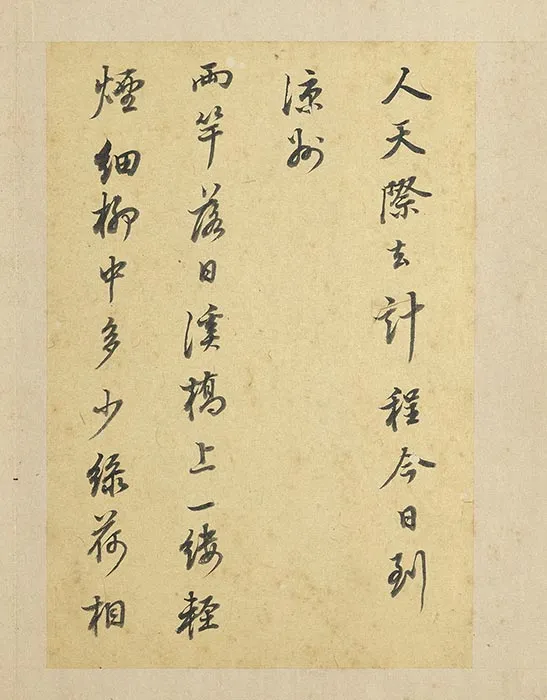 人天際去計程今日到
涼州
兩竿落日溪橋上一縷輕
煙細柳中多少綠荷相